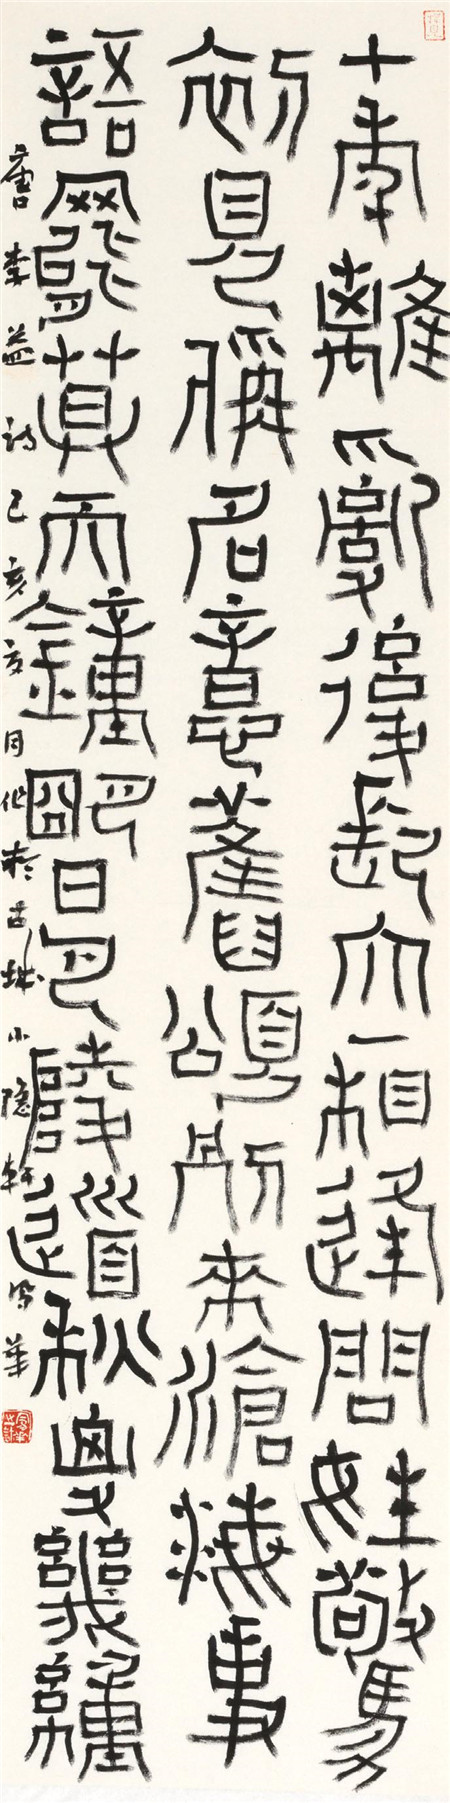 十年離亂後長大一相逢問姓驚
初見稱名意舊頌別來滄海事
語罷莫天鐘明日巴陵道秋山又幾重
唐李益詩己亥夏月作於古城小隐軒華